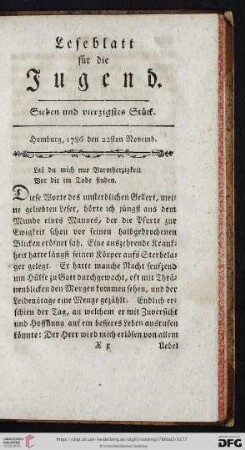 Leseblatt
für die
Jugend.
Sieben und vierzigstes Stück.
Hamburg, 1786 den 22sten Novemb.
Laß du mich nur Barmherzigkeit
Vor dir im Tode finden.
Diese Worte des unsterblichen Gellert, mei-
ne geliebten Leser, hörte ich jüngst aus dem
Munde eines Mannes, der die Pforte zur
Ewigkeit schon vor seinen halbgebrochenen
Blicken eröfnet sah. Eine auszehrende Krank-
heit hatte längst seinen Körper aufs Sterbela-
ger gelegt. Er hatte manche Nacht seufzend
um Hülfe zu Gott durchgewacht, oft mit Thrä-
nenblicken den Morgen kommen sehen, und der
Leidenstage eine Menge gezählt. Endlich er-
schien der Tag, an welchem er mit Zuversicht
und Hoffnung auf ein besseres Leben ausrufen
könnte: Der Herr wird mich erlösen von allem
Uebel
DFG